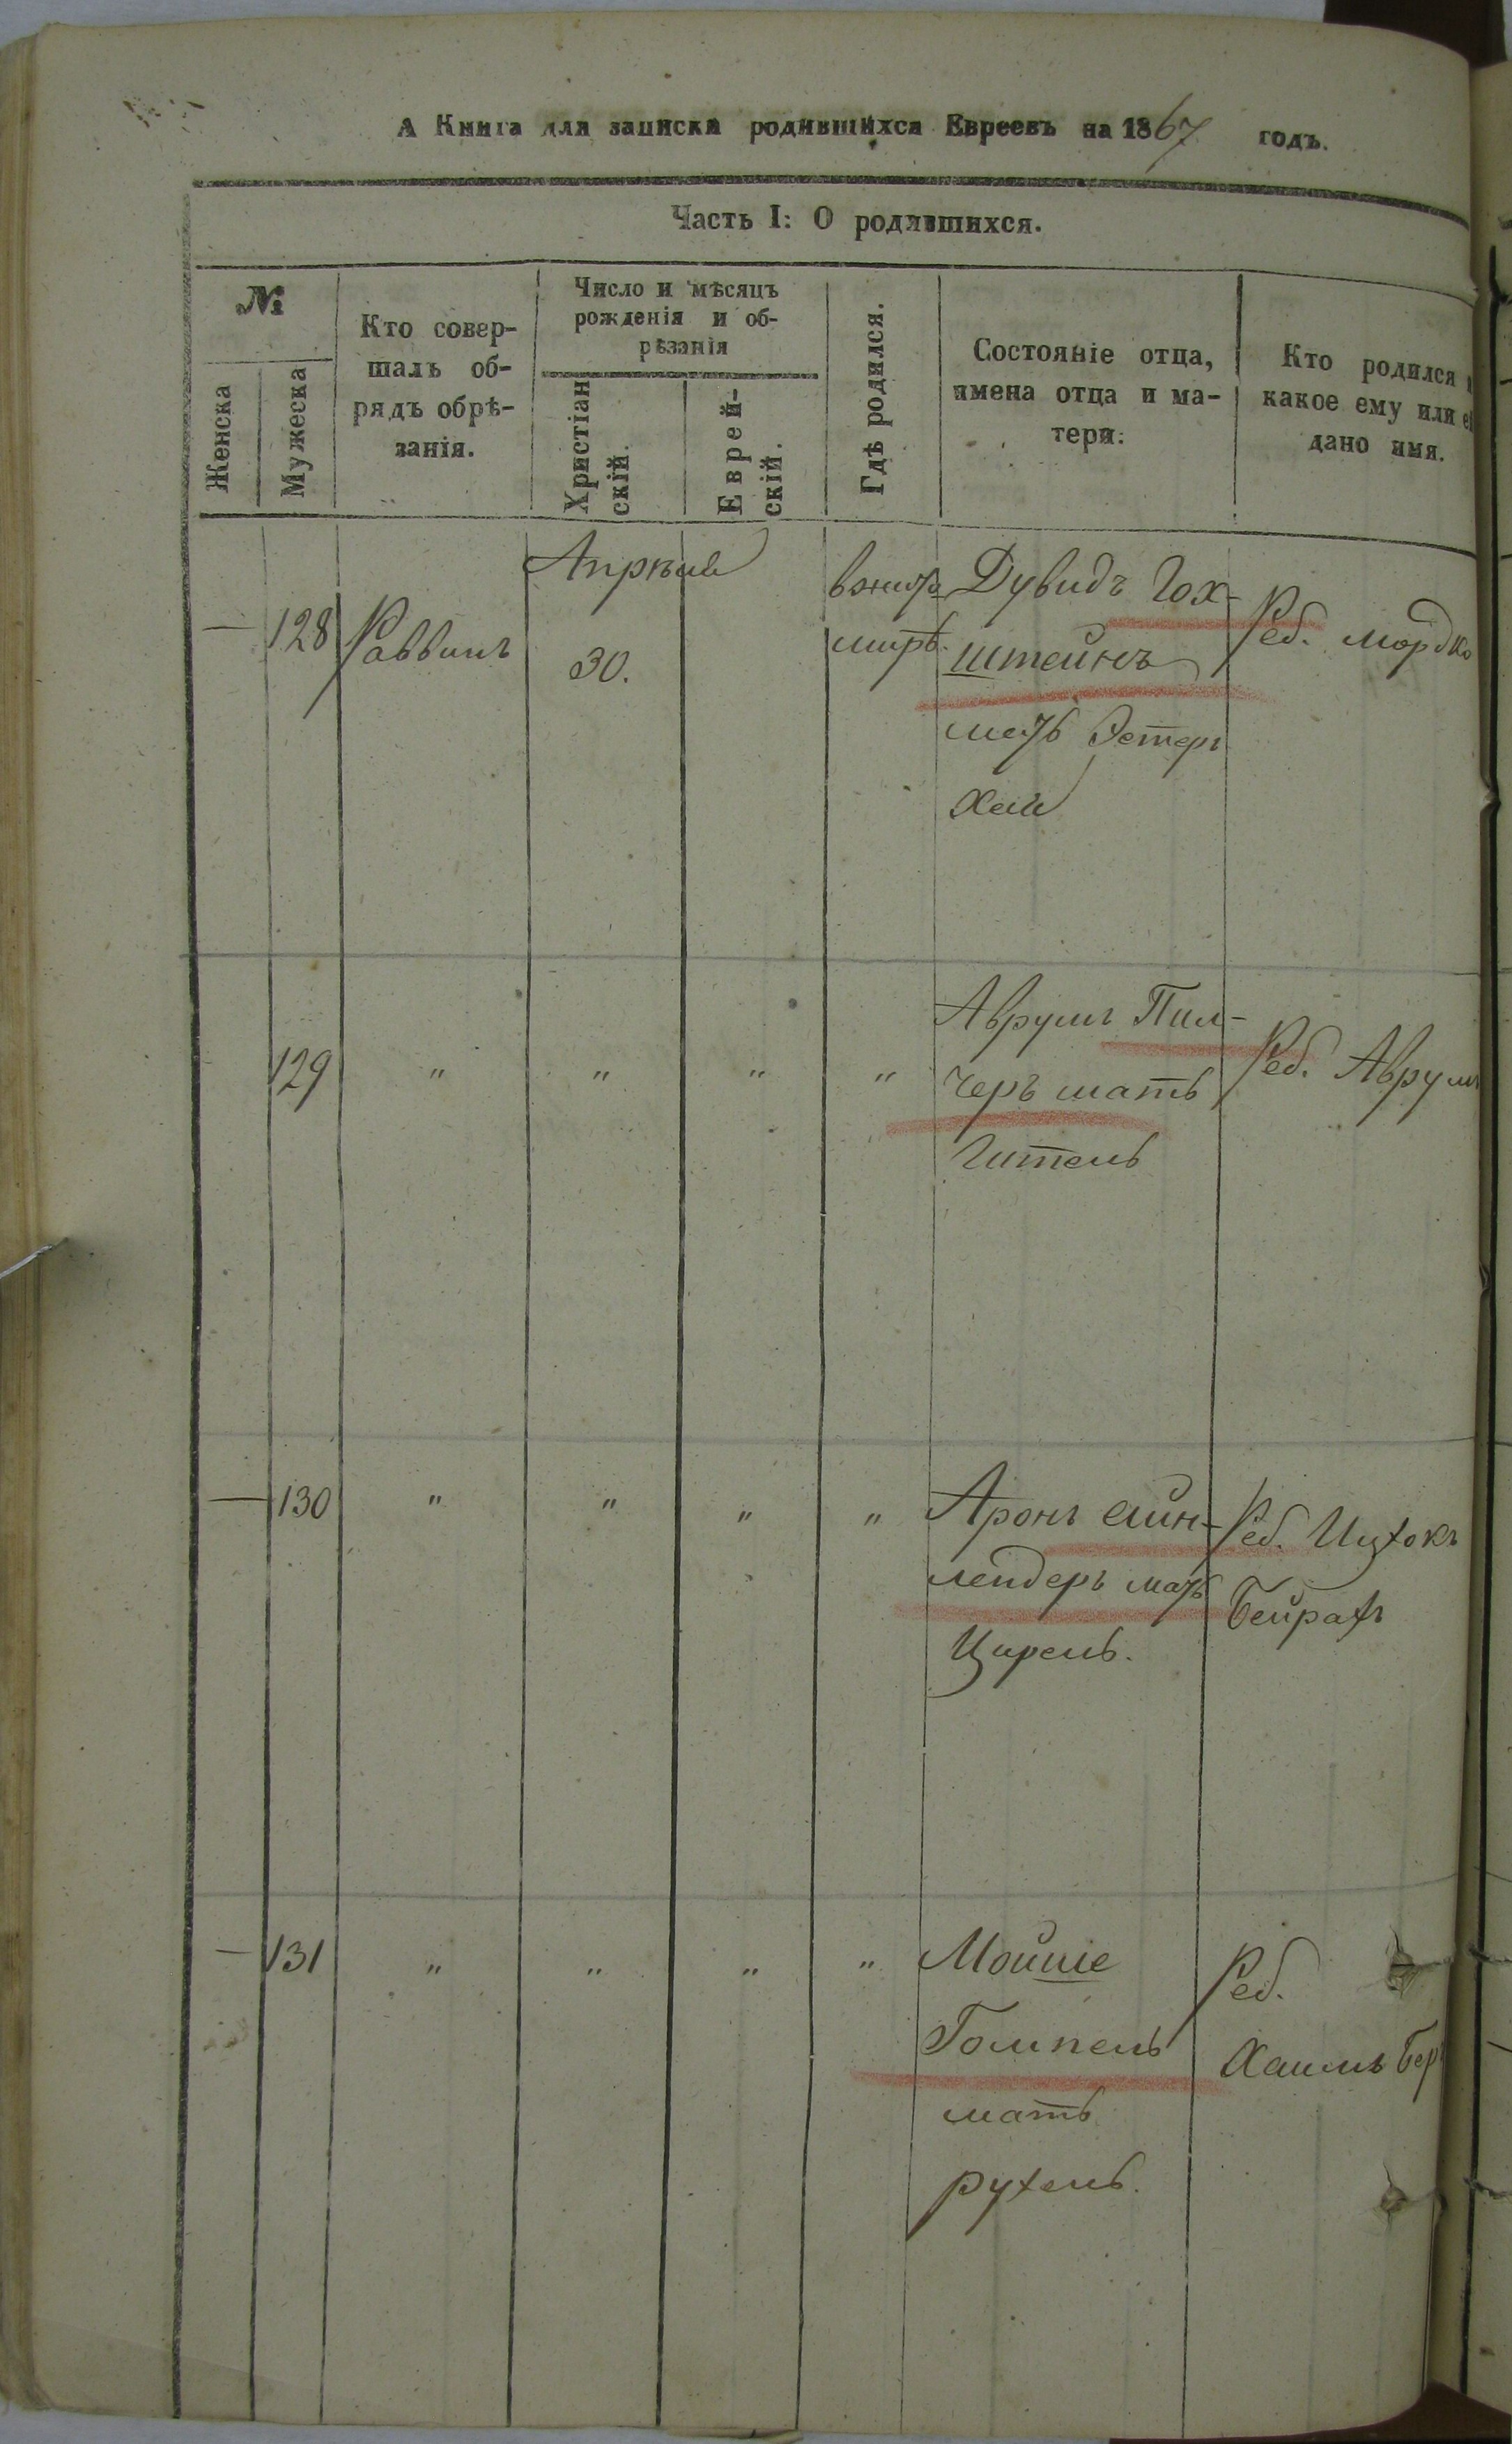 А Книга для записки родившихся Евреевъ на 1867 годъ.
Часть I: О родившихся.
№
Женска
Мужеска
Кто совер-
шалъ об-
рядъ обрѣ-
занія.
Число и мѣсяцъ
рожденія и об-
рѣзанія
Христіан
скій.
Еврей-
скій.
Гдѣ родился.
Состояніе отца,
имена отца и ма-
тери.
Кто родился
какое ему или
дано имя.
— 128 Раввинъ
Апрѣля
30.
Дувидъ Гох-
штейнъ
мать Эстеръ
Хая
Реб. Мордко
129 " " " "
Аврумъ Пил-
черъ мать
Гитель
Реб. Аврумъ
— 130 " " " "
Аронъ Айн-
лендеръ мать
Цирель.
Реб. Ицхокъ
— 131 " " " "
Мойше
Гомпель
мать
рухель.
Реб.
Хаимъ Бер